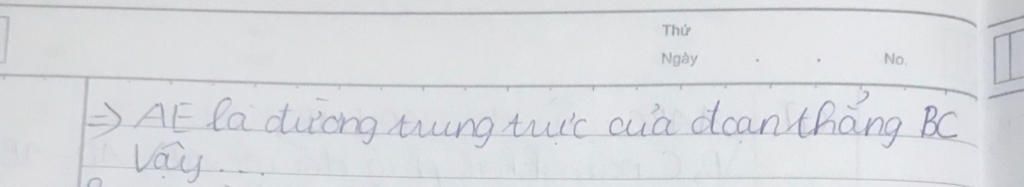 Thứ
Ngày . . No.
=> AE là đường trung trực của đoạn thẳng BC
Vậy...